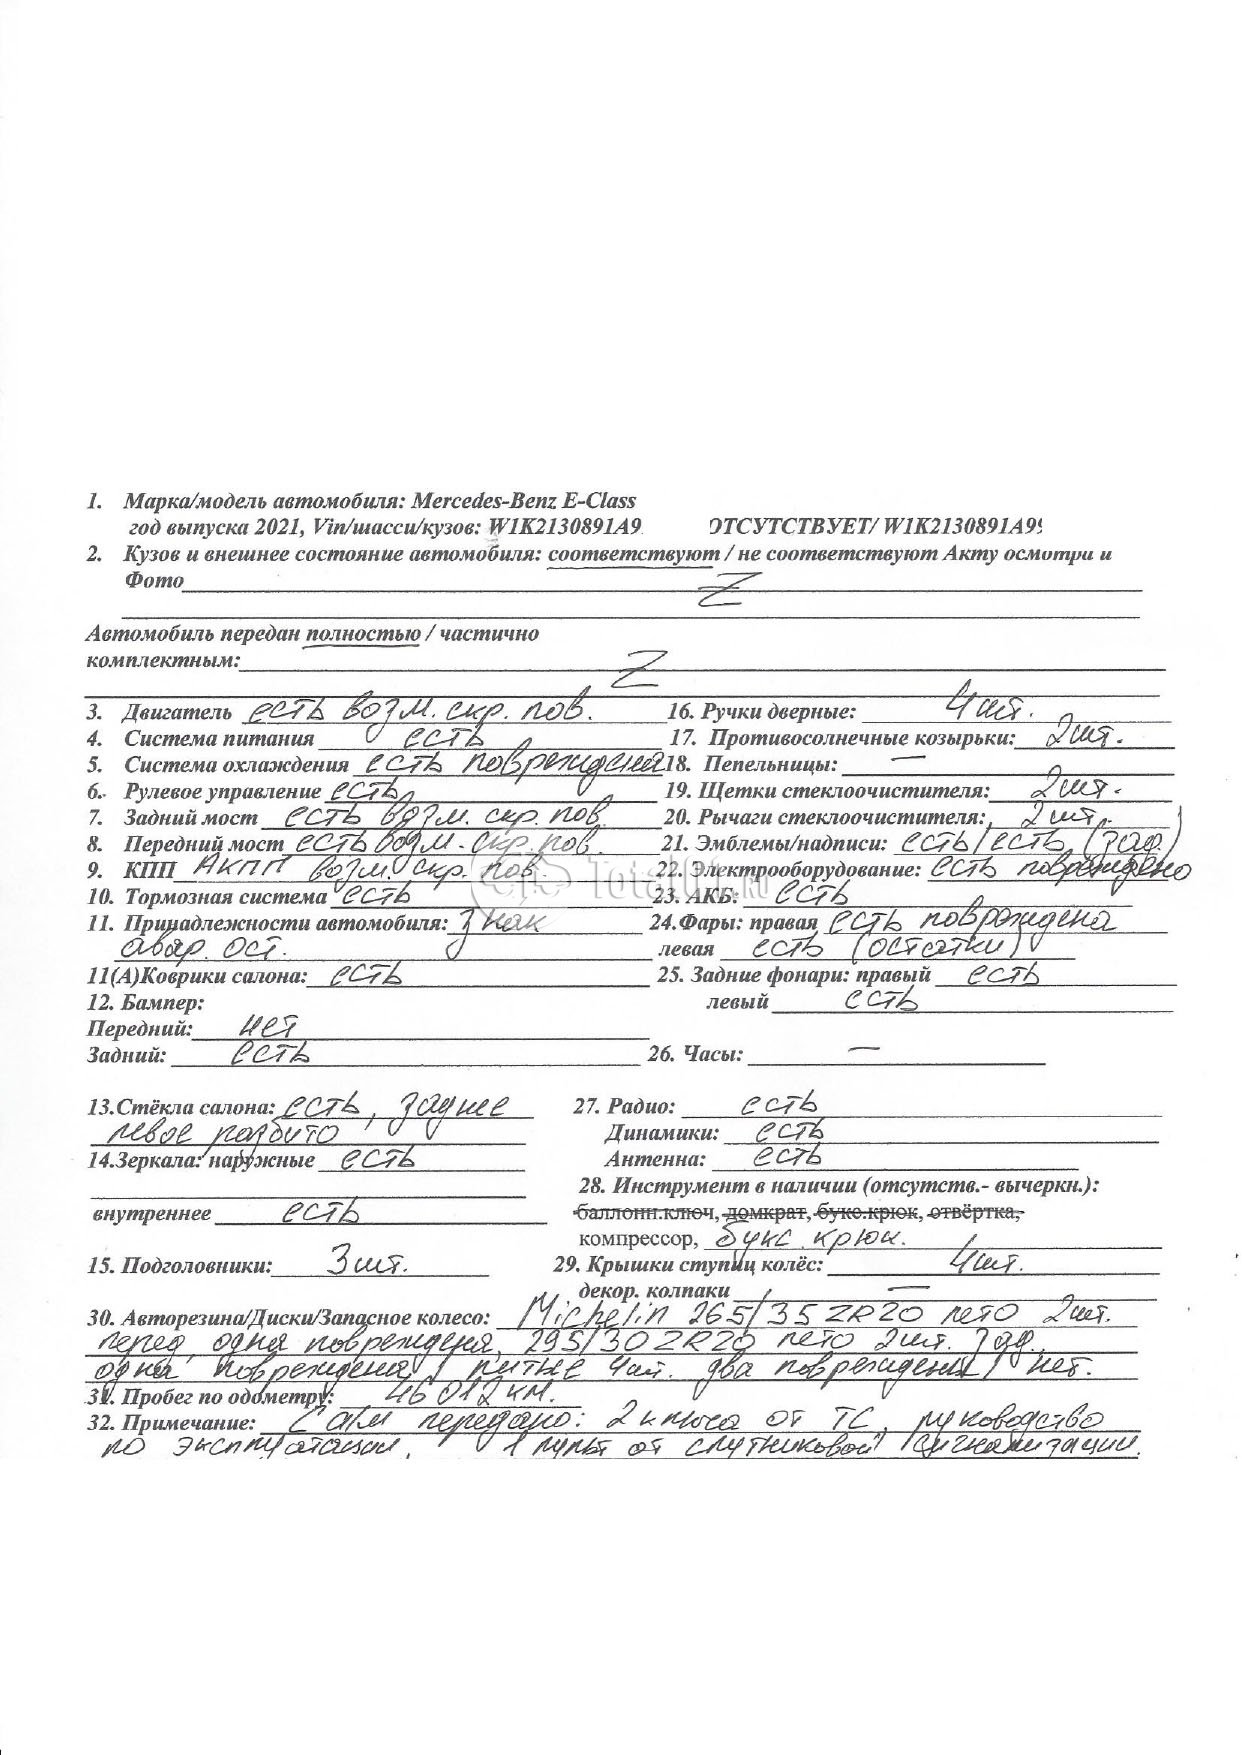 1. Марка/модель автомобиля: Mercedes-Benz E-Class
год выпуска 2021, Vin/шасси/кузов: W1K2130891A9 ОТСУТСТВУЕТ/ W1K2130891A9
2. Кузов и внешнее состояние автомобиля: соответствуют / не соответствуют Акту осмотра и
Фото Z
Автомобиль передан полностью / частично
комплектным: Z
3. Двигатель есть возм. скр. пов.
4. Система питания есть
5. Система охлаждения есть повреждена
6. Рулевое управление есть
7. Задний мост есть возм. скр. пов.
8. Передний мост есть возм. скр. пов.
9. КПП АКПП возм. скр. пов
10. Тормозная система есть
11. Принадлежности автомобиля: знак
авар. ост.
11(А)Коврики салона: есть
12. Бампер:
Передний: нет
Задний: есть
13.Стёкла салона: есть, заднее
левое разбито
14.Зеркала: наружные есть
внутреннее есть
15. Подголовники: 3 шт.
16. Ручки дверные: 4 шт.
17. Противосолнечные козырьки: 2 шт.
18. Пепельницы: —
19. Щетки стеклоочистителя: 2 шт.
20. Рычаги стеклоочистителя: 2 шт.
21. Эмблемы/надписи: есть/есть (зад)
22. Электрооборудование: есть повреждено
23. АКБ: есть
24.Фары: правая есть повреждена
левая есть (остатки)
25. Задние фонари: правый есть
левый есть
26. Часы: —
27. Радио: есть
Динамики: есть
Антенна: есть
28. Инструмент в наличии (отсутств.- вычеркн.):
баллонн.ключ, домкрат, букс.крюк, отвёртка,
компрессор, букс. крюк.
29. Крышки ступиц колёс: 4 шт.
декор. колпаки —
30. Авторезина/Диски/Запасное колесо: Michelin 265/35 ZR20 лето 2 шт.
перед, одна повреждена, 295/30 ZR20 лето 2 шт. зад,
одна повреждена / литые 4 шт. два повреждены / нет.
31. Пробег по одометру: 46 012 км.
32. Примечание: С а/м передано: 2 ключа от ТС, руководство
по эксплуатации, 1 пульт от спутниковой сигнализации.
Total01.RU